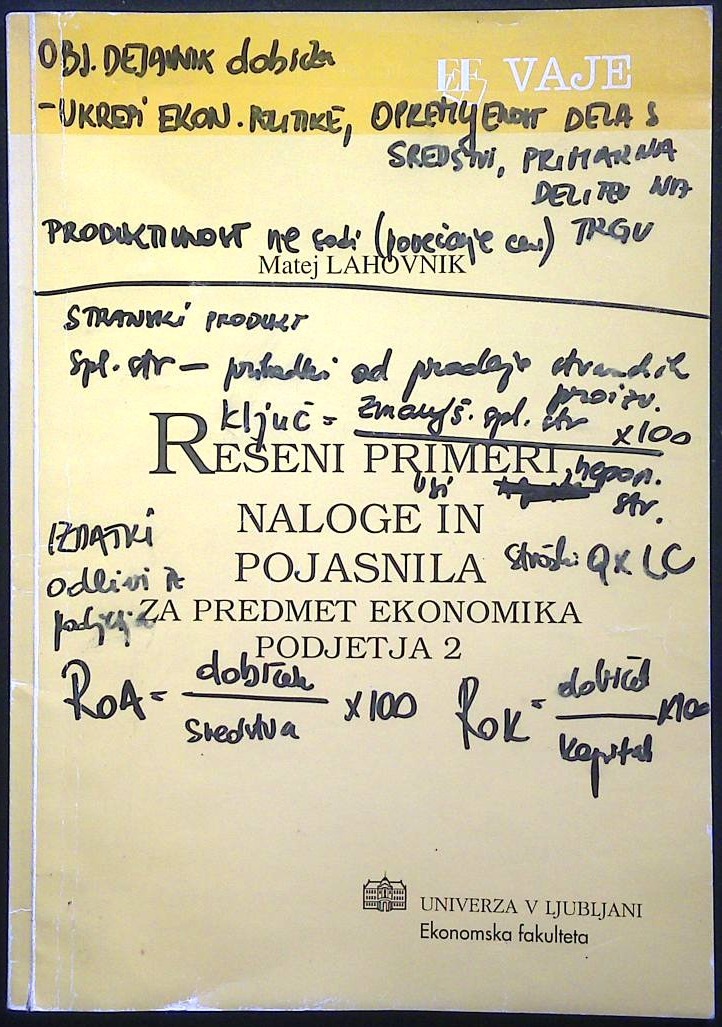 OBJ. DEJAVNIK dobička
EF VAJE
- UKREPI EKON. POLITIKE, OPREMLJENOST DELA S
SREDSTVI, PRIMARNA
DELITEV NA
TRGU
PRODUKTIVNOST ne sodi (povečanje cen)
Matej LAHOVNIK
STRANSKI PRODUKT
Spl. str - prihodki od prodaje stranskih
proizv.
ključ = zmanjš. spl. str x100
REŠENI PRIMERI,
vsi nepos.
str.
NALOGE IN
IZDATKI
POJASNILA
stroški Q x LC
odlivi iz
podjetja
ZA PREDMET EKONOMIKA
PODJETJA 2
ROA = dobiček x100
sredstva
ROK = dobiček x100
kapital
UNIVERZA V LJUBLJANI
Ekonomska fakulteta